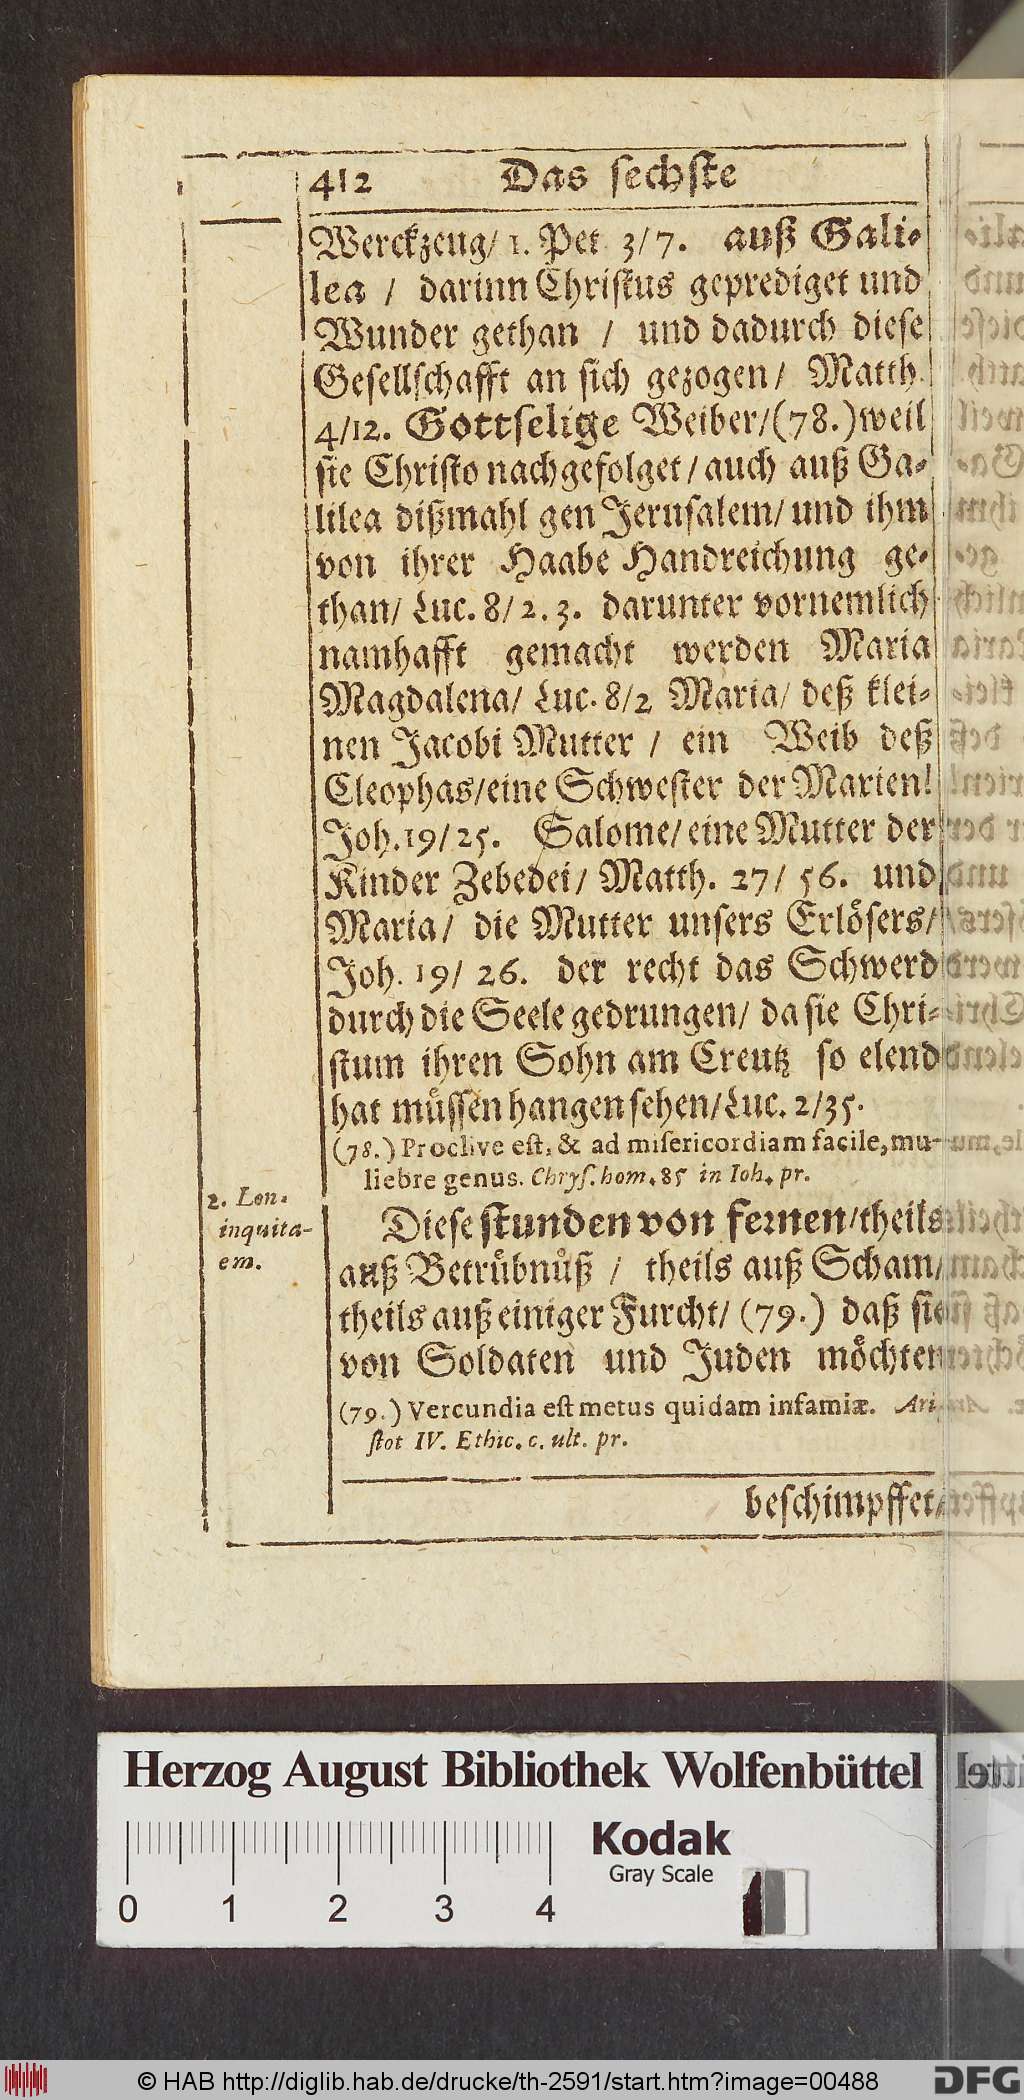 412 Das sechste
Werckzeug/ 1. Pet 3/7. auß Gali-
lea / darinn Christus geprediget und
Wunder gethan / und dadurch diese
Gesellschafft an sich gezogen/ Matth.
4/12. Gottselige Weiber/(78.) weil
sie Christo nachgefolget/ auch auß Ga-
lilea dißmahl gen Jerusalem/ und ihm
von ihrer Haabe Handreichung ge-
than/ Luc. 8/2.3. darunter vornemlich
namhafft gemacht werden Maria
Magdalena/ Luc. 8/2 Maria/ deß klei-
nen Jacobi Mutter / ein Weib deß
Cleophas/eine Schwester der Marien!
Joh.19/25. Salome/ eine Mutter der
Kinder Zebedei/ Matth. 27/ 56. und
Maria/ die Mutter unsers Erlösers/
Joh. 19/ 26. der recht das Schwerd
durch die Seele gedrungen/ da sie Chri-
stum ihren Sohn am Creutz so elend
hat müssen hangen sehen/Luc. 2/35.
(78.) Proclive est, & ad misericordiam facile, mu-
liebre genus. Chrys. hom. 85 in Ioh. pr.
2. Lon-
inquita-
em.
Diese stunden von fernen/theils
auß Betrübnüß / theils auß Scham/
theils auß einiger Furcht/ (79.) daß sie
von Soldaten und Juden möchten
(79.) Vercundia est metus quidam infamiæ. Ari-
stot IV. Ethic. c. ult. pr.
beschimpffet/
Herzog August Bibliothek Wolfenbüttel
Kodak
Gray Scale
0 1 2 3 4
© HAB http://diglib.hab.de/drucke/th-2591/start.htm?image=00488
DFG